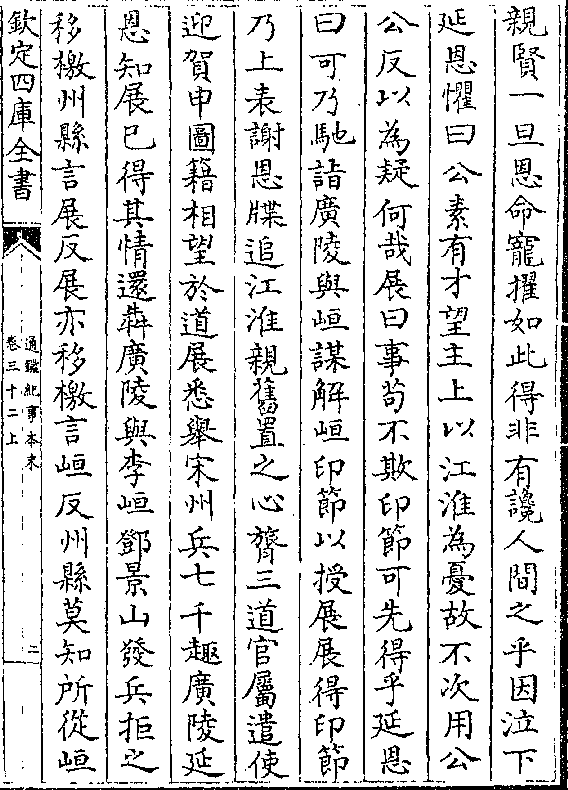 親賢一旦恩命寵擢如此得非有讒人間之乎因泣下
延恩懼曰公素有才望主上以江淮為憂故不次用公
公反以為疑何哉展曰事茍不欺印節可先得乎延恩
曰可乃馳詣廣陵與峘謀解峘印節以授展展得印節
乃上表謝恩牒追江淮親舊置之心膂三道官屬遣使
迎賀申圖籍相望於道展悉舉宋州兵七千趣廣陵延
恩知展已得其情還犇廣陵與李峘鄧景山發兵拒之
移檄州縣言展反展亦移檄言峘反州縣莫知所從峘
欽定四庫全書
通鑑紀事本末
卷三十二上
二